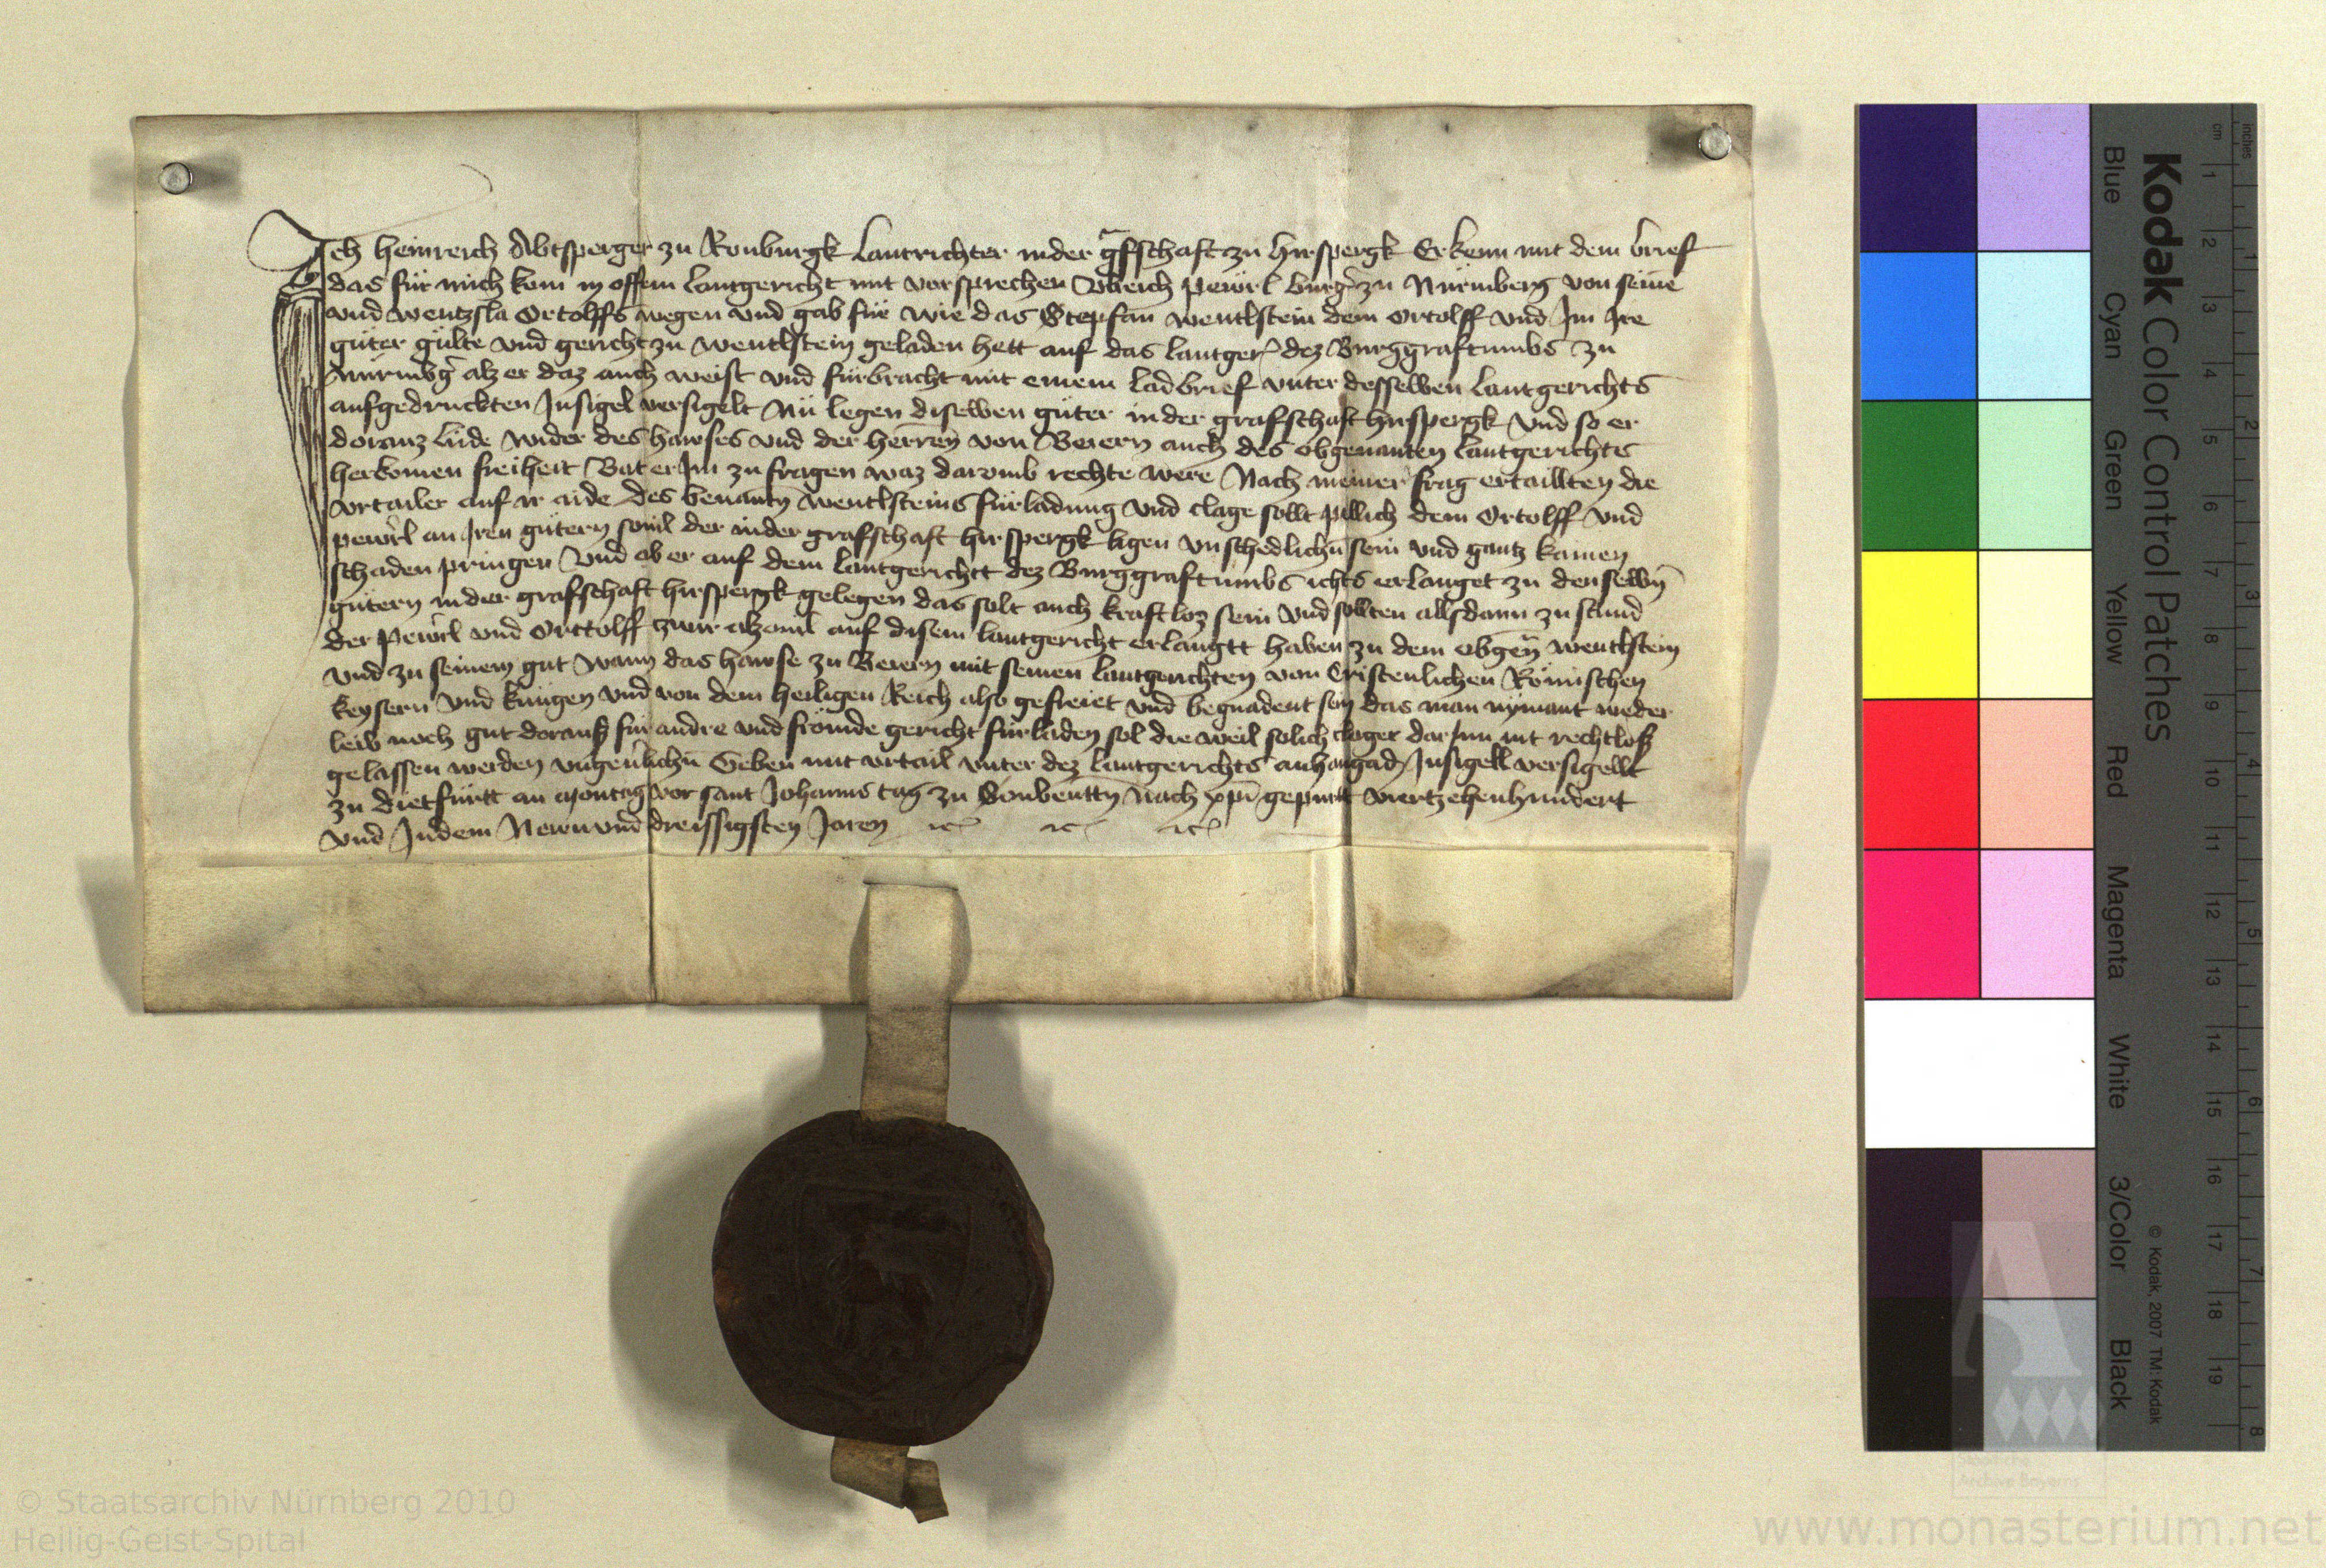 Ich heinreich Abtsperger zu Ronburgk lantrichter inder gfschaft zu hirspergk Erkenn mit dem brief
das für mich kom in offem lantgericht mit vorsprechen Vlreich pewrl burg' zu Nürmberg von seine
vnd wentzsla Ortolffs wegen vnd gab für wie das Stepfan wentlstein dem ortolff vnd Im Ire
güter gülte vnd gericht zu wentlstein geladen hett auf das lantger' dez Burggraftumbs zu
Nürmbg' alz er daz auch weist vnd fürbracht mit einem ladbrief vnter desselben lantgerichts
aufgedruckten Insigel versigelt Nü legen diselben güter in der grafschaft hirspergk vnd so er
doranz lüde wider des hawses vnd der herren von Beiern auch des obgenanten lantgerichts
herkomen freiheit Bat er Im zu fragen waz darvmb rechte were Nach meiner frag ertaillten die
vrtailer auf ir aide des benantn wentlsteins fürladung vnd clage sollt pillich dem Ortolff vnd
pewrl an Iren gütern souil der inder grafschaft hirspergk ligen vnschedlichn sein vnd gantz kainen
schaden pringen vnd ob er auf dem lantgerichtt dez Burggraftumbs ichts erlanget zu denselbn
gütern inder grafschaft hirspergk gelegen das solt auch kraftloz sein vnd sollten allsdann zu stund
der pewrl vnd Orttolff zwir alzouil auf disem lantgericht erlangtt haben zu dem obgen wentlstein
vnd zu seinem gut wann das hawse zu Beiern mit seinen lantgerichten von Cristenlichen Römischen
keysern vnd küngen vnd von dem heiligen Reich also gefreiet vnd begnadent sein das man nymant weder
leib noch gut dorauß für andre vnd frömde gericht fürladen sol die weil solich clager dar Inn nit rechtloß
gelassen werden vngeu'lichn Geben mit vrtail vnter dez lantgerichts anhangad Insigell versigellt
zu dietfürtt an Montag vor sant Johanns tag zu Sonbenttn Nach xpi gepurtt viertzehenhundert
vnd Indem Newnvnd dreissigsten Jaren etc etc etc
Kodak Color Control Patches
Blue Cyan Green Yellow Red Magenta White 3/Color Black
© Kodak, 2007 TM: Kodak
cm 1 2 3 4 5 6 7 8 9 10 11 12 13 14 15 16 17 18 19
inches 1 2 3 4 5 6 7 8
© Staatsarchiv Nürnberg 2010
Heilig-Geist-Spital
Staatliche
Archive Bayerns
www.monasterium.net